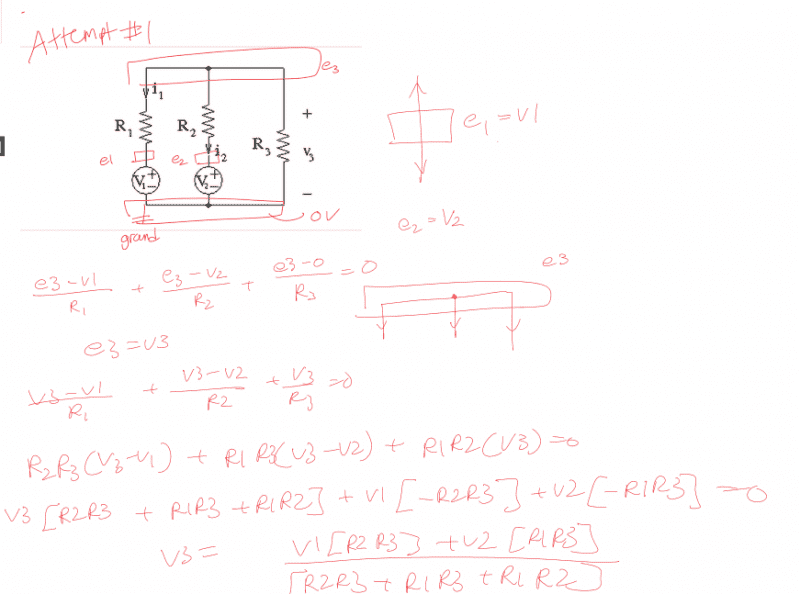 Attempt #1
e3
i1
R1 R2 R3 + v3 −
e1 e2 i2
V1 + − V2 + −
0V
grand
e1 = V1
e2 = V2
e3
e3-v1/R1 + e3-v2/R2 + e3-0/R3 = 0
e3 = v3
v3-v1/R1 + v3-v2/R2 + v3/R3 = 0
R2R3(v3-v1) + R1R3(v3-v2) + R1R2(v3) = 0
v3[R2R3 + R1R3 + R1R2] + v1[-R2R3] + v2[-R1R3] = 0
v3 = v1[R2R3] + v2[R1R3] / [R2R3 + R1R3 + R1R2]